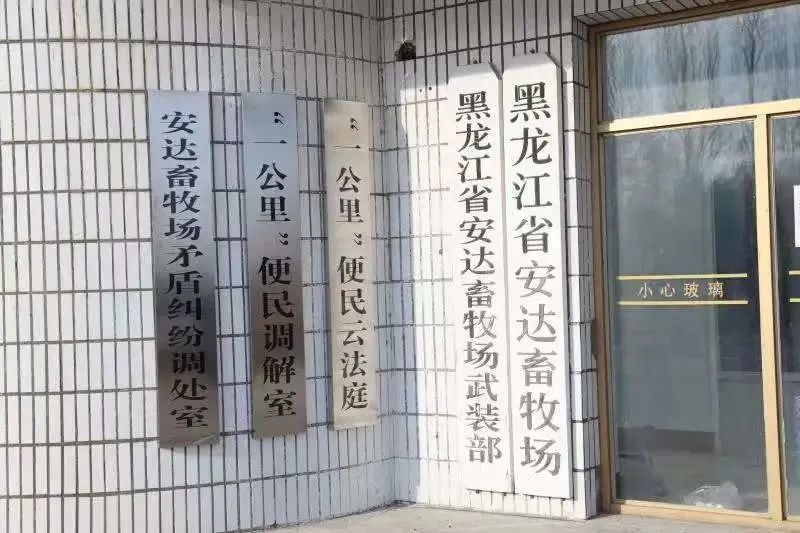 安达畜牧场矛盾纠纷调处室
“一公里”便民调解室
“一公里”便民云法庭
黑龙江省安达畜牧场武装部
黑龙江省安达畜牧场
小心玻璃